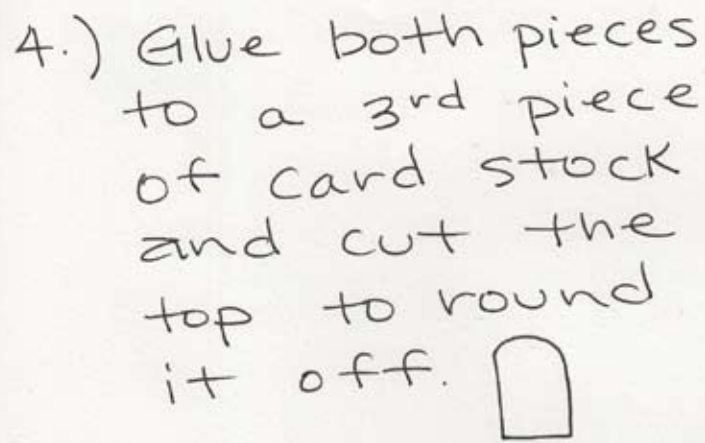 4.) Glue both pieces
to a 3rd piece
of card stock
and cut the
top to round
it off.